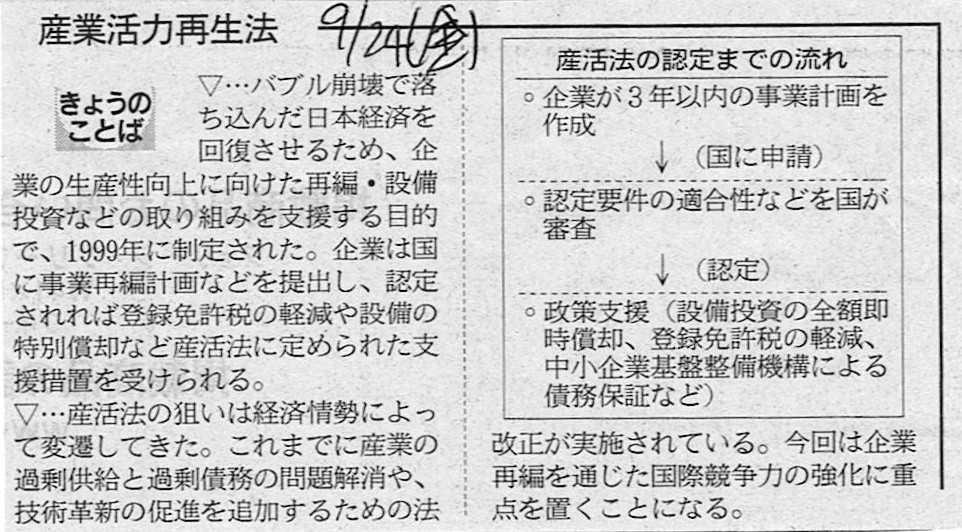 産業活力再生法
9/24(金)
きょうの
ことば
▽…バブル崩壊で落
ち込んだ日本経済を
回復させるため、企
業の生産性向上に向けた再編・設備
投資などの取り組みを支援する目的
で、1999年に制定された。企業は国
に事業再編計画などを提出し、認定
されれば登録免許税の軽減や設備の
特別償却など産活法に定められた支
援措置を受けられる。
▽…産活法の狙いは経済情勢によっ
て変遷してきた。これまでに産業の
過剰供給と過剰債務の問題解消や、
技術革新の促進を追加するための法
産活法の認定までの流れ
○企業が3年以内の事業計画を
作成
↓(国に申請)
○認定要件の適合性などを国が
審査
↓(認定)
○政策支援(設備投資の全額即
時償却、登録免許税の軽減、
中小企業基盤整備機構による
債務保証など)
改正が実施されている。今回は企業
再編を通じた国際競争力の強化に重
点を置くことになる。